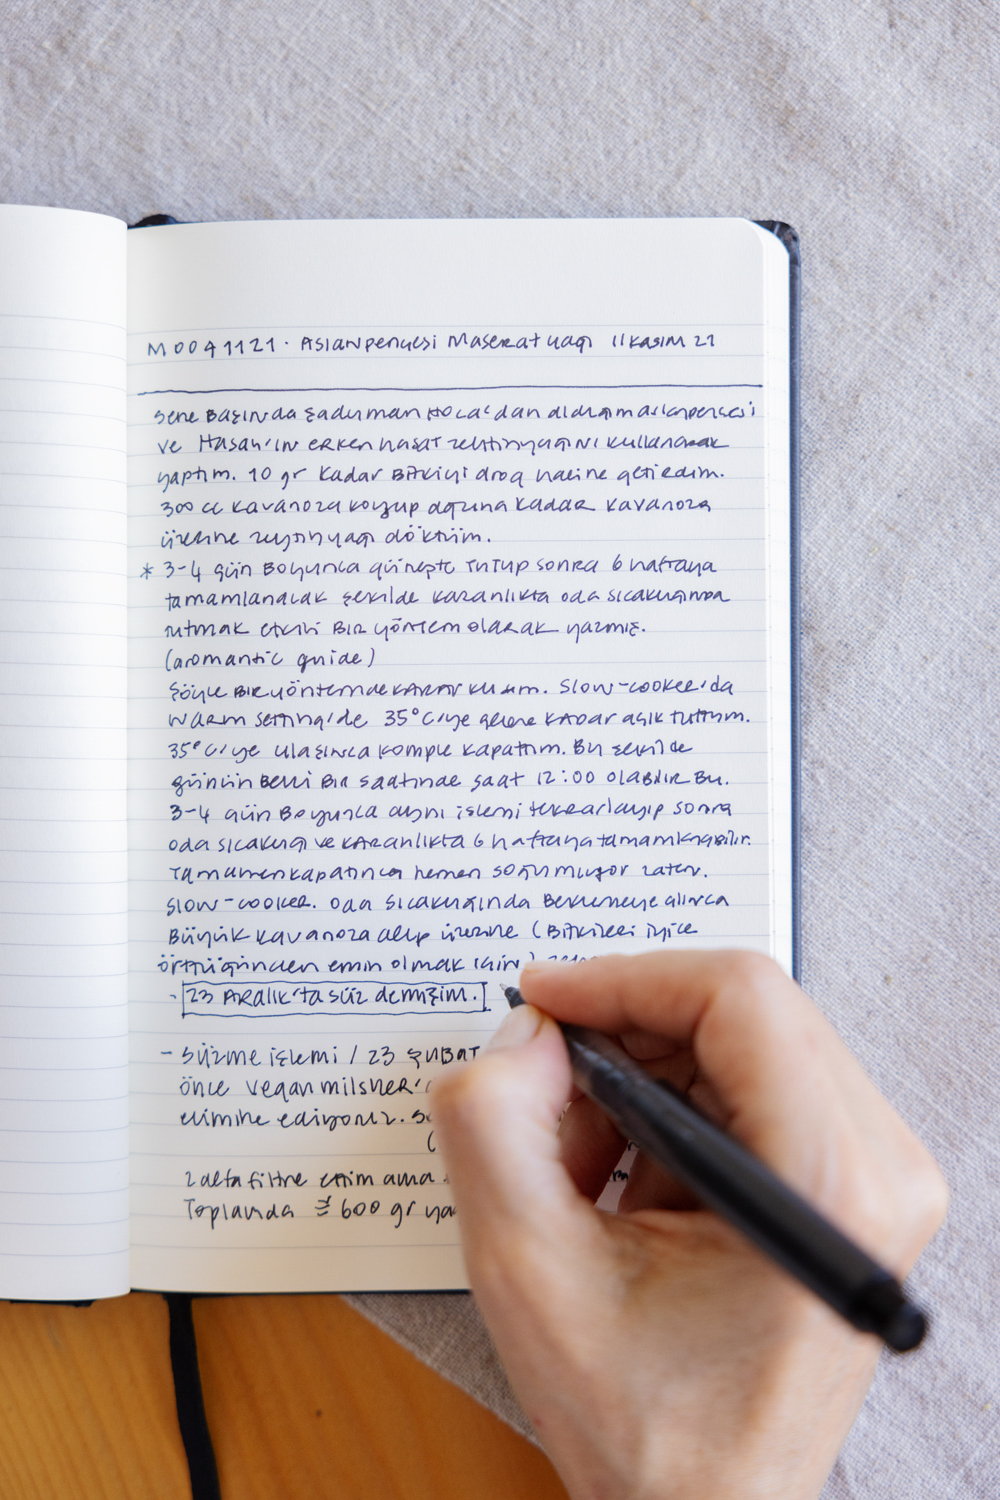 M0041121 · Aslanpençesi Maserat yağı 11 Kasım 21
Sene Başında Şaduman Hoca'dan aldığım aslanpençesi
ve Hasan'ın erken hasat zeytinyağını kullanarak
yaptım. 10 gr kadar Bitkiyi drog haline getirdim.
300 cc kavanoza koyup ağzına kadar kavanoza
üzerine zeytinyağı döktüm.
* 3-4 gün Boyunca güneşte tutup sonra 6 haftaya
tamamlanacak şekilde karanlıkta oda sıcaklığında
tutmak etkili Bir yöntem olarak yazmış.
(aromantic guide)
Şöyle Bir yöntemde karar kıldım. Slow-cooker'da
warm setting'de 35°C'ye gelene kadar açık tuttum.
35°C'ye ulaşınca komple kapattım. Bu şekilde
günün Belli Bir saatinde saat 12:00 olabilir Bu.
3-4 gün Boyunca aynı işlemi tekrarlayıp sonra
oda sıcaklığı ve karanlıkta 6 haftaya tamamlanabilir.
Tamamen kapatınca hemen soğumuyor zaten.
Slow-cooker. Oda sıcaklığında Beklemeye alınca
Büyük kavanoza alıp üzerine (Bitkileri iyice
örttüğünden emin olmak için)
- 23 Aralık'ta süz demişim.
- Süzme işlemi / 23 ŞUBAT
önce vegan milsher'
elimine ediyoruz.
(
2 defa filtre ettim ama
Toplamda ≅ 600 gr